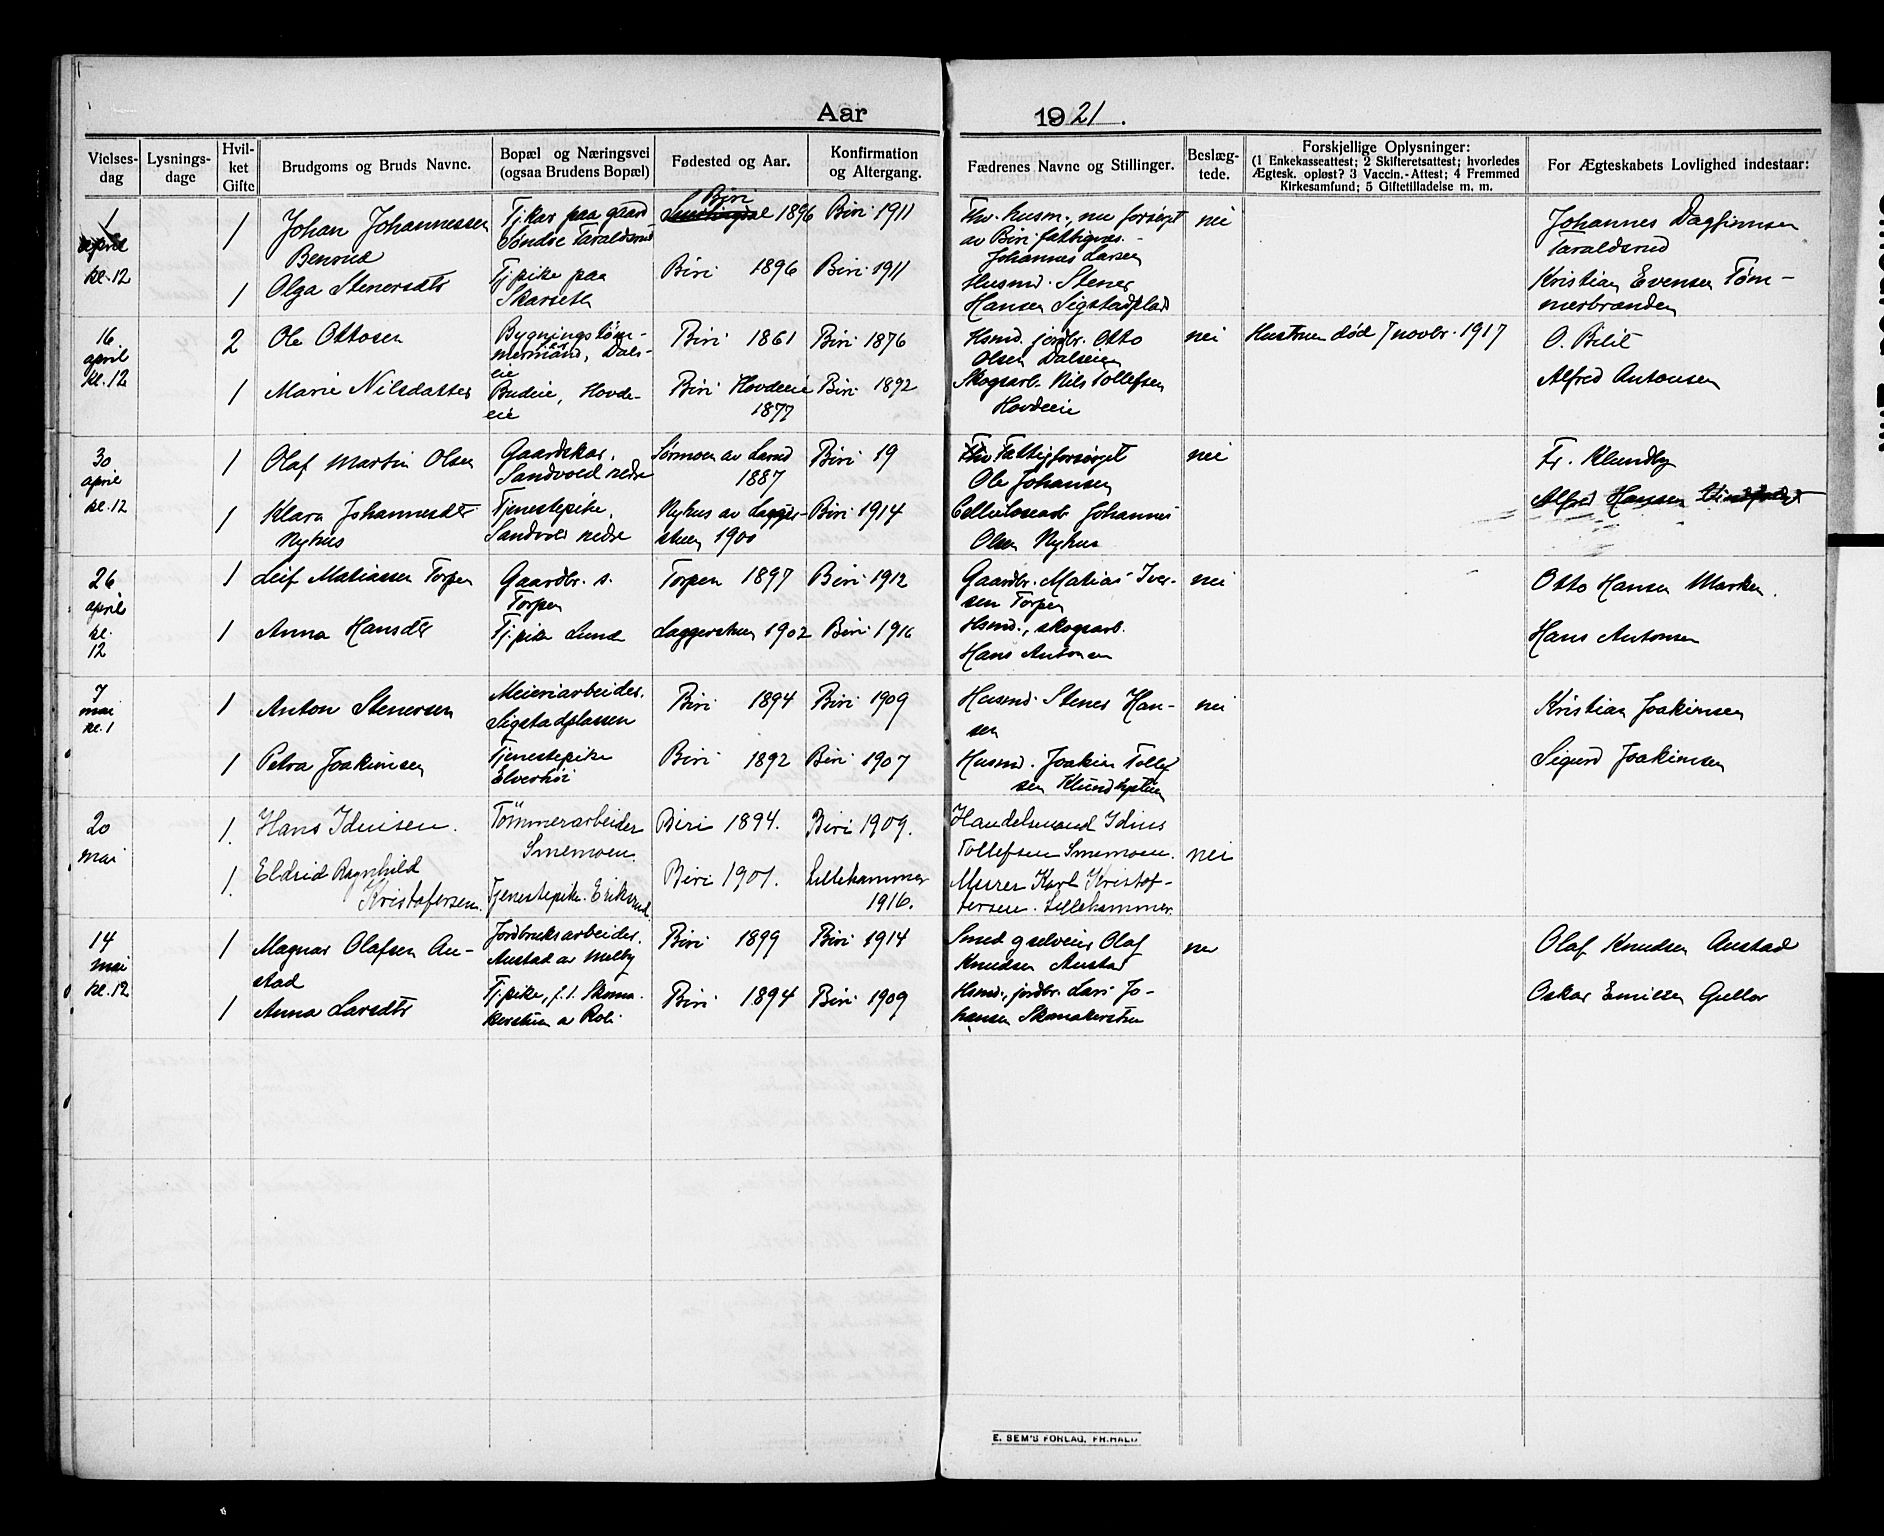 Aar
1921.
Vielses-
dag
Lysnings-
dage
Hvil-
ket
Gifte
Brudgoms og Bruds Navne.
Bopæl og Næringsvei
(ogsaa Brudens Bopæl)
Fødested og Aar.
Konfirmation
og Altergang.
Fædrenes Navne og Stillinger.
Beslæg-
tede.
Forskjellige Oplysninger:
(1 Enkekasseattest; 2 Skifteretsattest; hvorledes
Ægtesk. opløst? 3 Vaccin.-Attest; 4 Fremmed
Kirkesamfund; 5 Giftetilladelse m. m.
For Ægteskabets Lovlighed indestaar:
1
april
kl. 12
1
Johan Johannessen
Benrud
Tj.kar paa gaard
Søndre Taraldsrud
Biri
1896
Biri 1911
Fhv. husm. nu forsørget
av Biri fattigvæs.
Johannes Larsen
nei
Johannes Dagfinnsen
Taraldsrud
1
Olga Stenersdtr
Tj.pike paa
Skarseth
Biri 1896
Biri 1911
Husmd. Stener
Hansen Sigstadplads
Kristian Evensen Tøm-
merbranden
16
april
kl. 12
2
Ole Ottosen
Bygningstøm-
mermand, Dals-
eie
Biri 1861
Biri 1876
Hsmd. jordbr. Otto
Olsen Dalseien
nei
Hustruen død 7 novbr. 1917
O. Bilit
1
Marie Nilsdatter
Budeie, Hovde-
eie
Biri Hovdeeie
1877
Biri 1892
Skogsarb. Nils Tollefsen
Hovdeeie
Alfred Antonsen
30
april
kl. 12
1
Olaf Martin Olsen
Gaardskar,
Sandvold nedre
Sørmoen av Larud
1887
Biri 19
Fattigforsørget
Ole Johansen
nei
Fr. Klundby
1
Klara Johannesdtr
Nyhus
Tjenestepike,
Sandvold nedre
Nyhus av Lagger-
stuen 1900
Biri 1914
Cellulosearb Johannes
Olsen Nyhus
Alfred Hansen
26
april
kl.
12
1
Leif Matiassen Torpen
Gaardbr. s.
Torpen
Torpen 1897
Biri 1912
Gaardbr. Matias Iver-
sen Torpen
nei
Otto Hansen Marken.
1
Anna Hansdtr
Tj.pike Lund
Laggerstuen 1902
Biri 1916
Hsmd., skogsarb.
Hans Antonsen
Hans Antonsen
7
mai
kl. 1
1
Anton Stenersen
Meieriarbeider.
Sigstadplassen
Biri 1894
Biri 1909
Husmd. Stener Han-
sen
nei
Kristian Joakimsen
1
Petra Joakimsen
Tjenestepike
Elverhøi
Biri 1892
Biri 1907
Husmd. Joakim Tollef
sen Klundbystuen
Sigurd Joakimsen
20
mai
1.
Hans Idnisen.
Tømmerarbeider
Smemoen.
Biri 1894.
Biri 1909.
Handelsmand Idius
Tollefsen Smemoen.
nei
1.
Eldrid Ragnhild
Kristofersen.
Tjenestepike. Eriksrud.
Biri 1901.
Lillehammer
1916.
Murer Karl Kristof-
fersen. Lillehammer.
14
mai
kl. 12
1
Magnar Olafsen Au-
stad
Jordbruksarbeider.
Austad av Melby
Biri 1899
Biri 1914
Smed gselveier Olaf
Knudsen Austad
nei
Olaf Knudsen Austad
1
Anna Larsdtr
Tj.pike, f. t. Skoma
kerstuen a Roli
Biri 1894
Biri 1909
Hsmd., jordbr. Lars Jo-
hansen Skomakerstuen
Oskar Emilsen Gullor
E. SEM'S FORLAG, FR.HALD